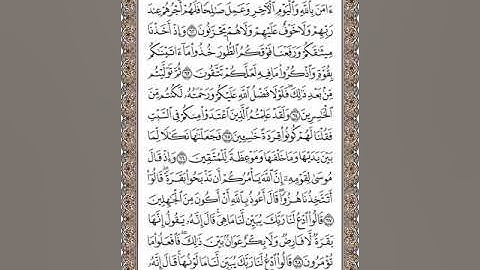 ءَامَنَ بِٱللَّهِ وَٱلۡيَوۡمِ ٱلۡأٓخِرِ وَعَمِلَ صَٰلِحٗا فَلَهُمۡ أَجۡرُهُمۡ عِندَ
رَبِّهِمۡ وَلَا خَوۡفٌ عَلَيۡهِمۡ وَلَا هُمۡ يَحۡزَنُونَ ٦٢ وَإِذۡ أَخَذۡنَا
مِيثَٰقَكُمۡ وَرَفَعۡنَا فَوۡقَكُمُ ٱلطُّورَ خُذُواْ مَآ ءَاتَيۡنَٰكُم
بِقُوَّةٖ وَٱذۡكُرُواْ مَا فِيهِ لَعَلَّكُمۡ تَتَّقُونَ ٦٣ ثُمَّ تَوَلَّيۡتُم
مِّنۢ بَعۡدِ ذَٰلِكَۖ فَلَوۡلَا فَضۡلُ ٱللَّهِ عَلَيۡكُمۡ وَرَحۡمَتُهُۥ لَكُنتُم مِّنَ
ٱلۡخَٰسِرِينَ ٦٤ وَلَقَدۡ عَلِمۡتُمُ ٱلَّذِينَ ٱعۡتَدَوۡاْ مِنكُمۡ فِي ٱلسَّبۡتِ
فَقُلۡنَا لَهُمۡ كُونُواْ قِرَدَةً خَٰسِـِٔينَ ٦٥ فَجَعَلۡنَٰهَا نَكَٰلٗا لِّمَا
بَيۡنَ يَدَيۡهَا وَمَا خَلۡفَهَا وَمَوۡعِظَةٗ لِّلۡمُتَّقِينَ ٦٦ وَإِذۡ قَالَ
مُوسَىٰ لِقَوۡمِهِۦٓ إِنَّ ٱللَّهَ يَأۡمُرُكُمۡ أَن تَذۡبَحُواْ بَقَرَةٗۖ قَالُوٓاْ
أَتَتَّخِذُنَا هُزُوٗاۖ قَالَ أَعُوذُ بِٱللَّهِ أَنۡ أَكُونَ مِنَ ٱلۡجَٰهِلِينَ
٦٧ قَالُواْ ٱدۡعُ لَنَا رَبَّكَ يُبَيِّن لَّنَا مَا هِيَۚ قَالَ إِنَّهُۥ يَقُولُ إِنَّهَا
بَقَرَةٞ لَّا فَارِضٞ وَلَا بِكۡرٌ عَوَانُۢ بَيۡنَ ذَٰلِكَۖ فَٱفۡعَلُواْ مَا
تُؤۡمَرُونَ ٦٨ قَالُواْ ٱدۡعُ لَنَا رَبَّكَ يُبَيِّن لَّنَا مَا لَوۡنُهَاۚ قَالَ إِنَّهُۥ